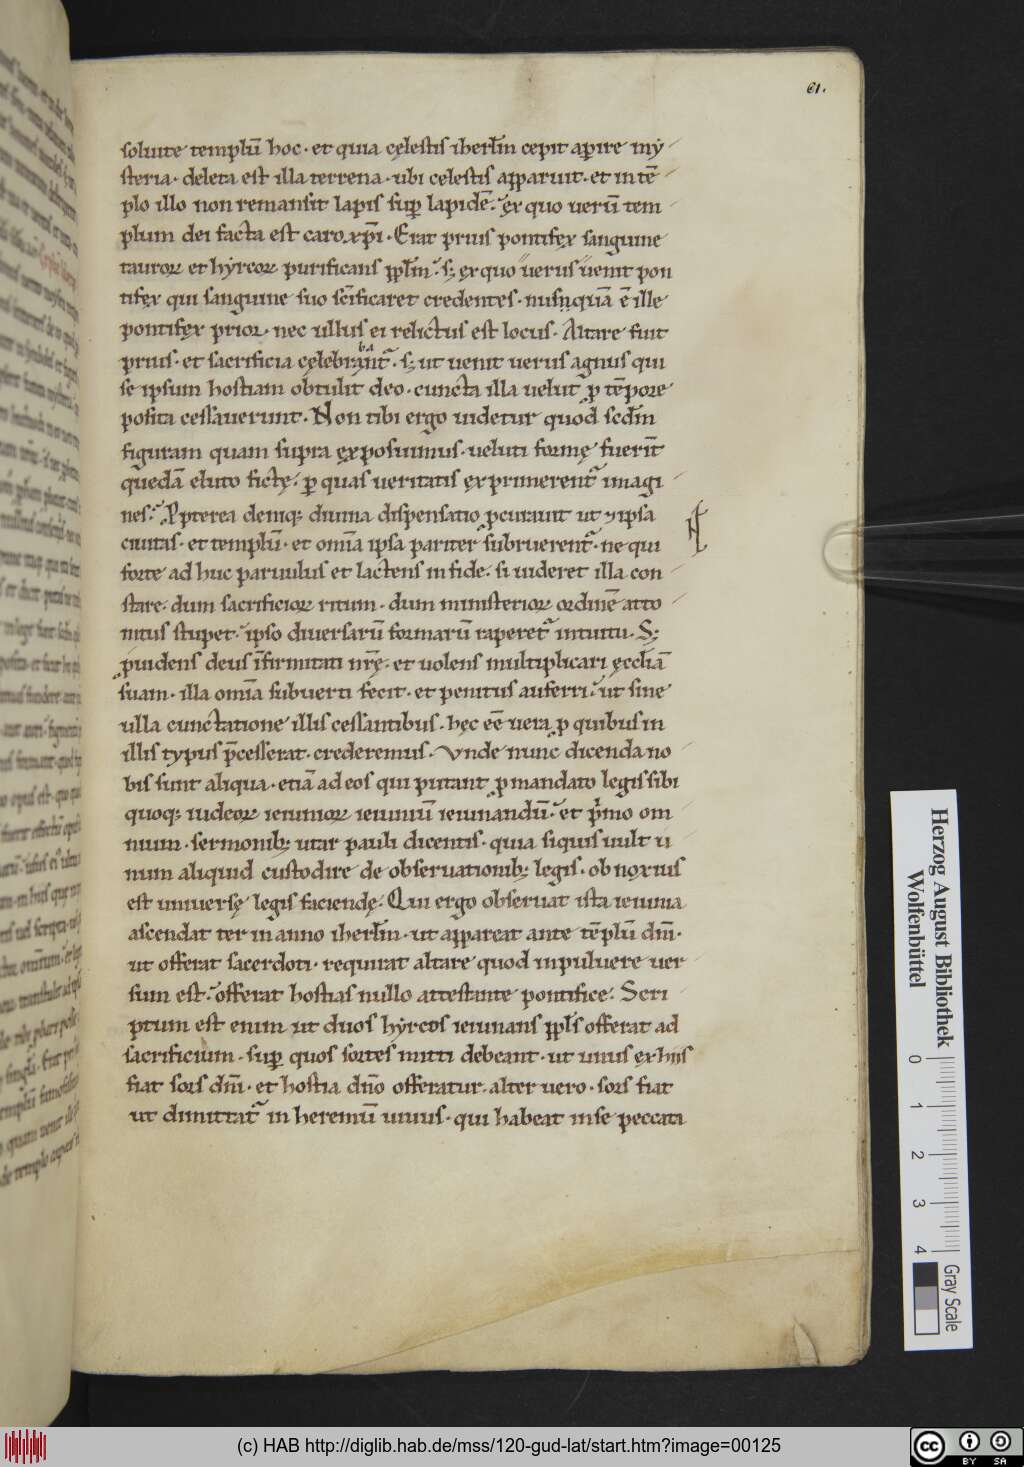 61.
soluite templū hoc· et quia cęlestis iherl̄m cepit aꝑire mẏ
steria· deleta est illa terrena· ubi celestis apparuit· et in tē
plo illo non remansit lapis suꝑ lapidē· ex quo uerū tem
plum dei facta est caro xp̄i· Erat prius pontifex sanguine
tauroꝝ et hẏrcoꝝ purificans ppl̄m· sꝫ ex quo uerus uenit pon
tifex qui sanguine suo scīficaret credentes· nusnquā ē ille
pontifex prior· nec ullus ei relictus est locus· Altare fuit
prius· et sacrificia cęlebrabant᷑· sꝫ ut uenit uerus agnus qui
se ipsum hostiam obtulit deo· cuncta illa uelut ꝓ tēpore
posita cessauerunt· Non tibi ergo uidetur quod scd̄m
figuram quam supra exposuimus· ueluti formę fuerīt
quedā eluto fictę· ꝑ quas ueritatis exprimerent᷑ imagi
nes· Ꝓpterea deniqꝫ diuina dispensatio ꝓcurauit ut ⁊ ipsa
ciuitas· et templū· et om̄ia ipsa pariter subruerent᷑· ne qui
forte ad huc paruulus et lactens in fide· si uideret illa con
stare· dum sacrificioꝝ ritum· dum ministerioꝝ ordinē atto
nitus stupet· ipso diuersarū formarū raperet᷑ intuitu· Sꝫ
ꝓuidens deus īfirmitati nr̄ę· et uolens multiplicari ęccl̄iā
suam· illa om̄ia subuerti fecit· et penitus auferri· ut sine
ulla cunctatione illis cessantibus· hęc eē uera ꝓ quibus in
illis typus p̄cesserat· crederemus· Vnde nunc dicenda no
bis sunt aliqua· etiā ad eos qui putant ꝓ mandato legis sibi
quoqꝫ iudeoꝝ ieiunioꝝ ieiuniū ieiunandū· et pͥmo om
nium· sermonibꝫ utar pauli dicentis· quia siquis uult u
num aliquid custodire de obseruationibꝫ legis· obnoxius
est uniuersę legis faciendę· Qui ergo obseruat ista ieiunia
ascendat ter in anno iherl̄m· ut appareat ante tēplū dn̄i·
ut offerat sacerdoti· requirat altare quod in puluere uer
sum est· offerat hostias nullo attestante pontifice· Scri
ptum est enim ut duos hẏrcos ieiunans ppl̄s offerat ad
sacrificium· suꝑ quos sortes mitti debeant· ut unus ex hiis
fiat sors dn̄i· et hostia dn̄o offeratur· alter uero· sors fiat
ut dimittat᷑ in heremū uiuus· qui habeat in se peccati
Herzog August Bibliothek
Wolfenbüttel
0 1 2 3 4
Gray Scale
(c) HAB http://diglib.hab.de/mss/120-gud-lat/start.htm?image=00125
cc BY SA